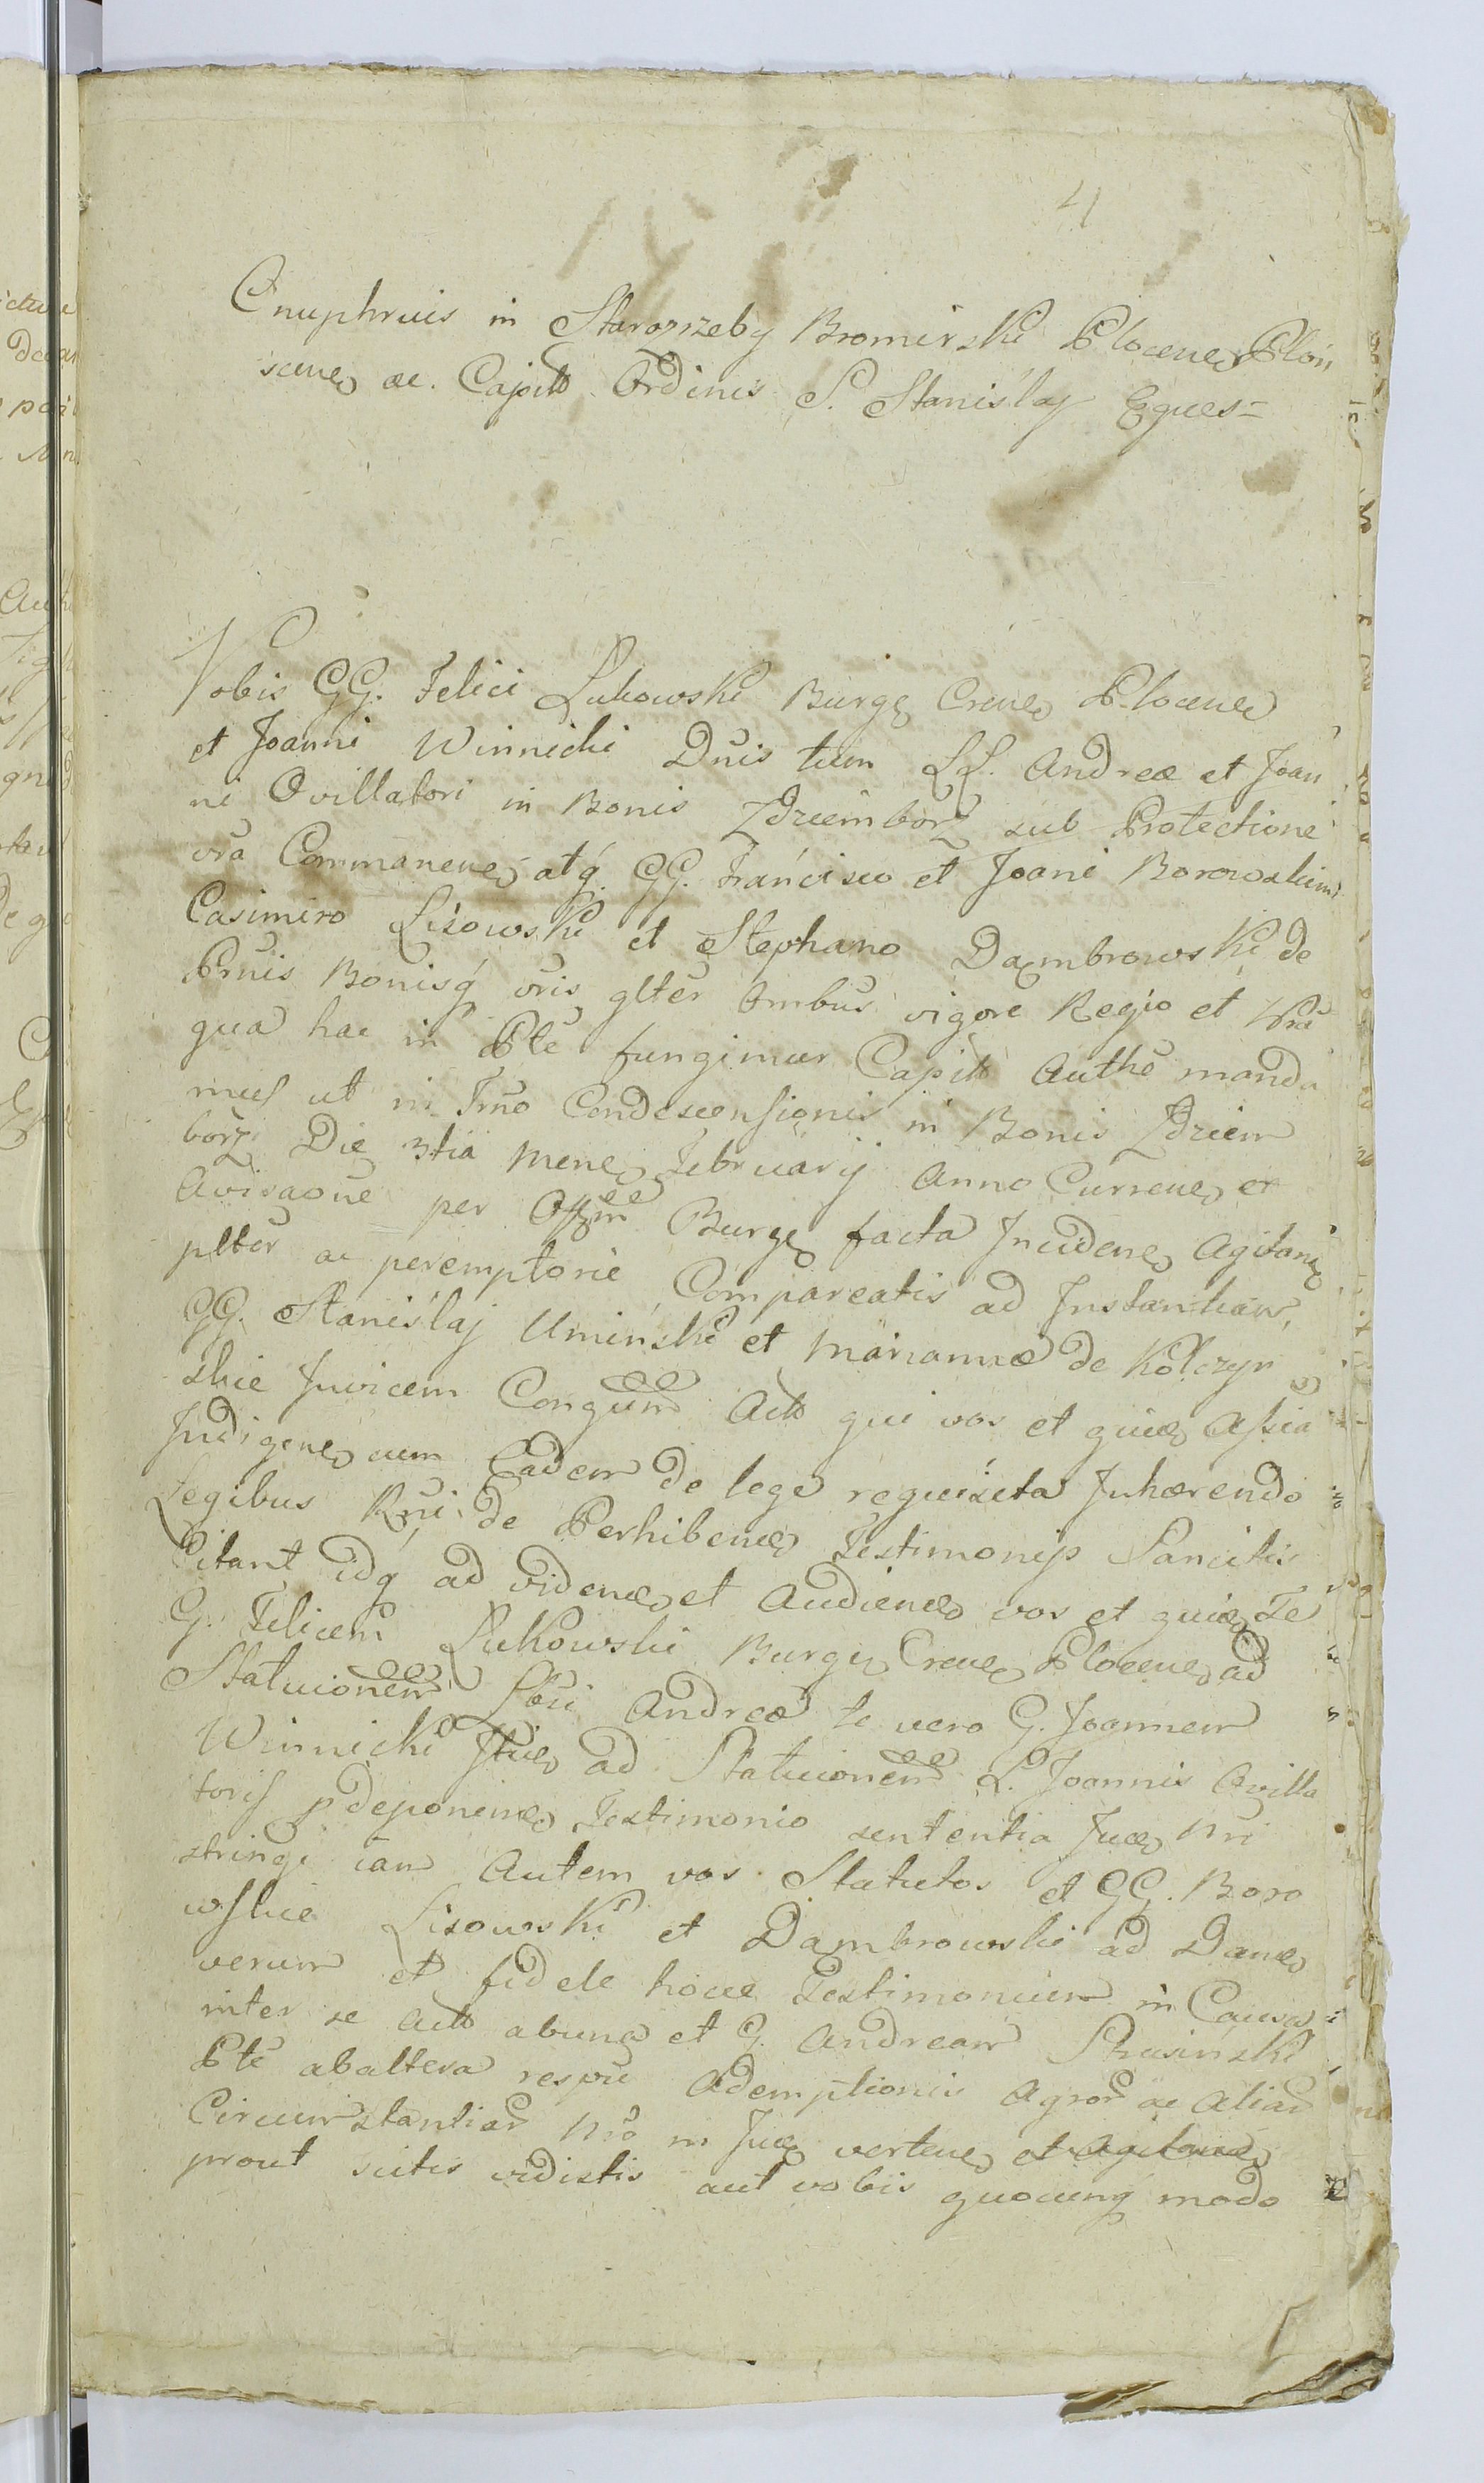 4
Onuphrius in Starozrzeby Bromirski Plocen Płoń
scen ac Capit Ordinis S. Stanislaj Eques=
Vobis GG. Felici Lukowski Burg Cven Plocen
et Joanni Winnicki Dnis tum LL. Andreæ et Joan
ni Ovillatori in Bonis Zdziemborz sub Protectione
vra Commanen atq GG. Francisco et Joani Borowskim
Casimiro Lisowski et Stephano Dąmbrowski de
Prnis Bonisq vris glter Ombus vigore Regio et Nra
qua hac in Pte fungimur Capit Authe manda
mus ut in Trno Condescensionis in Bonis Zdziem
borz Die 3tia Mens Februarij Anno Curren er
Avisaone per Offm Burg facta Inciden Agitan
plter ac peremptorie Compareatis ad Instantiam
GG. Stanislaj Uminski et Mariannæ de Kołczyn
skie Invicem Congum Act qui vos et quive Assia
Indigen cum Eadem de lege requisita Inhærendo
Legibus Rni de Perhiben Testimonijs Sancitis
Citant idq ad viden et Audien vos et quive Te
G. Felicem Lukowski Burg Cven Plocen ad
Statuionem Lbri Andreæ te vero G. Joannem
Winnicki ad Statuionem L. Joannis Ovilla
toris p deponen Testimonio sententia Juce Nri
stringi iam Autem vos Statutos et GG. Boro
wskie Lisowski et Dąmbrowski ad Dan
verum et fidele Testimonium in Causa
inter se Act abuna et G. Andream Strusinski
Pte abaltera respu Ademptionis Agror ac Aliar
Circumstantiar Nro in Juce verten et Agitan
prout scitis vidistis aut vobis quocunq modo